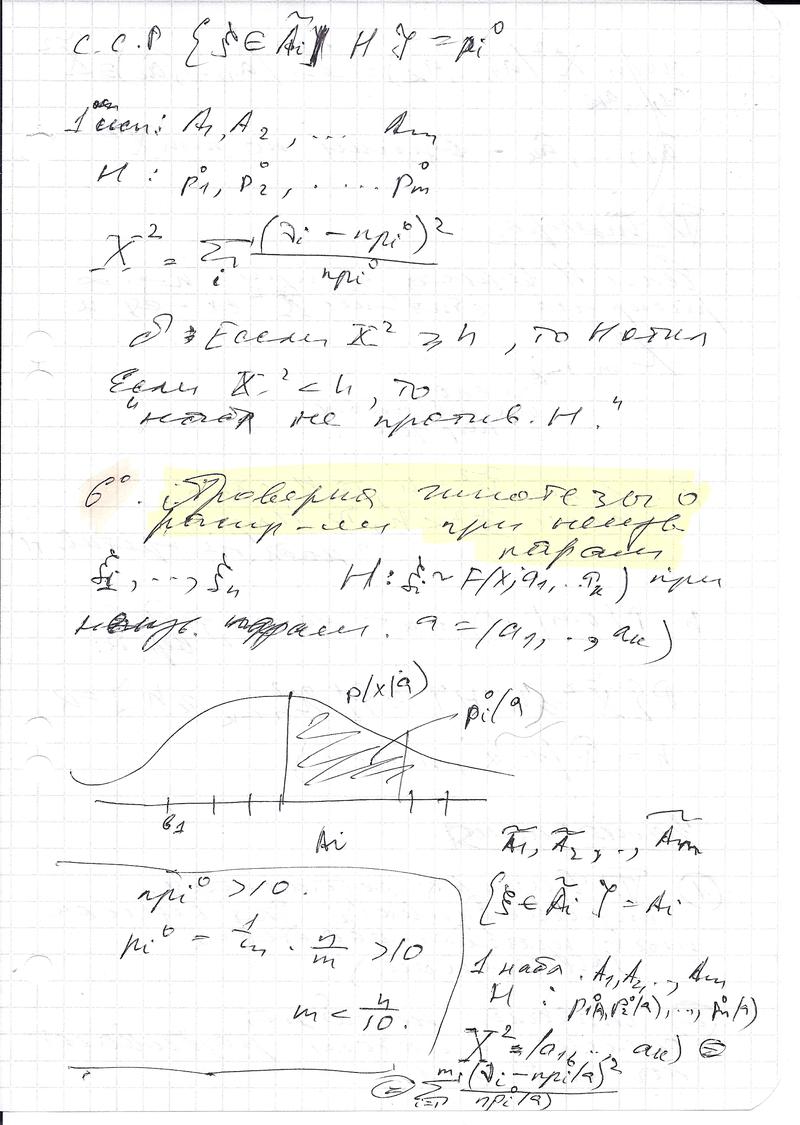 P {ξ ∈ Ãi | H} = pi⁰
1 исп: A1, A2, ... Am
H : p1⁰, p2⁰, ..... pm⁰
X² = Σi (νi − npi⁰)² / npi⁰
δ : Если X² ≥ h, то H откл
Если X² < h, то
" не против. H."
6°. Проверка гипотезы о
распр-ии при неизв.
парам
ξ1, .., ξn H: ξi ~ F(x; a1, .. ak) при
неизв. парам. a = (a1, .., ak)
p(x|a)
pi⁰(a)
в1
Ai
npi⁰ > 10.
pi⁰ = 1/m . n/m > 10
m < n/10.
Ã1, Ã2, .., Ãm
{ξ ∈ Ãi} = Ai
1 набл. A1, A2, .., Am
H : p1⁰, p2⁰(a), .., pm⁰(a)
X² = (a1, .., ak) =
= Σi=1 m (νi − npi(a))² / npi⁰(a)